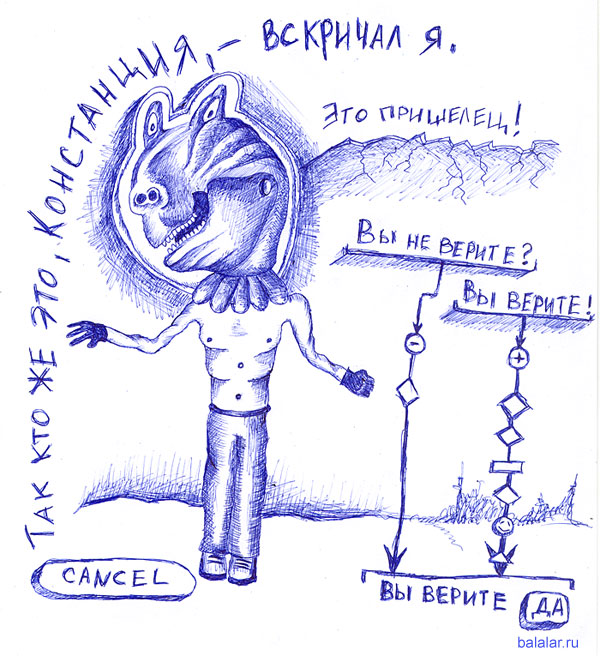 Так кто же это, Констанция, – вскричал я.
Это пришелец!
Вы не верите?
Вы верите!
Вы верите
Да
CANCEL
balalar.ru